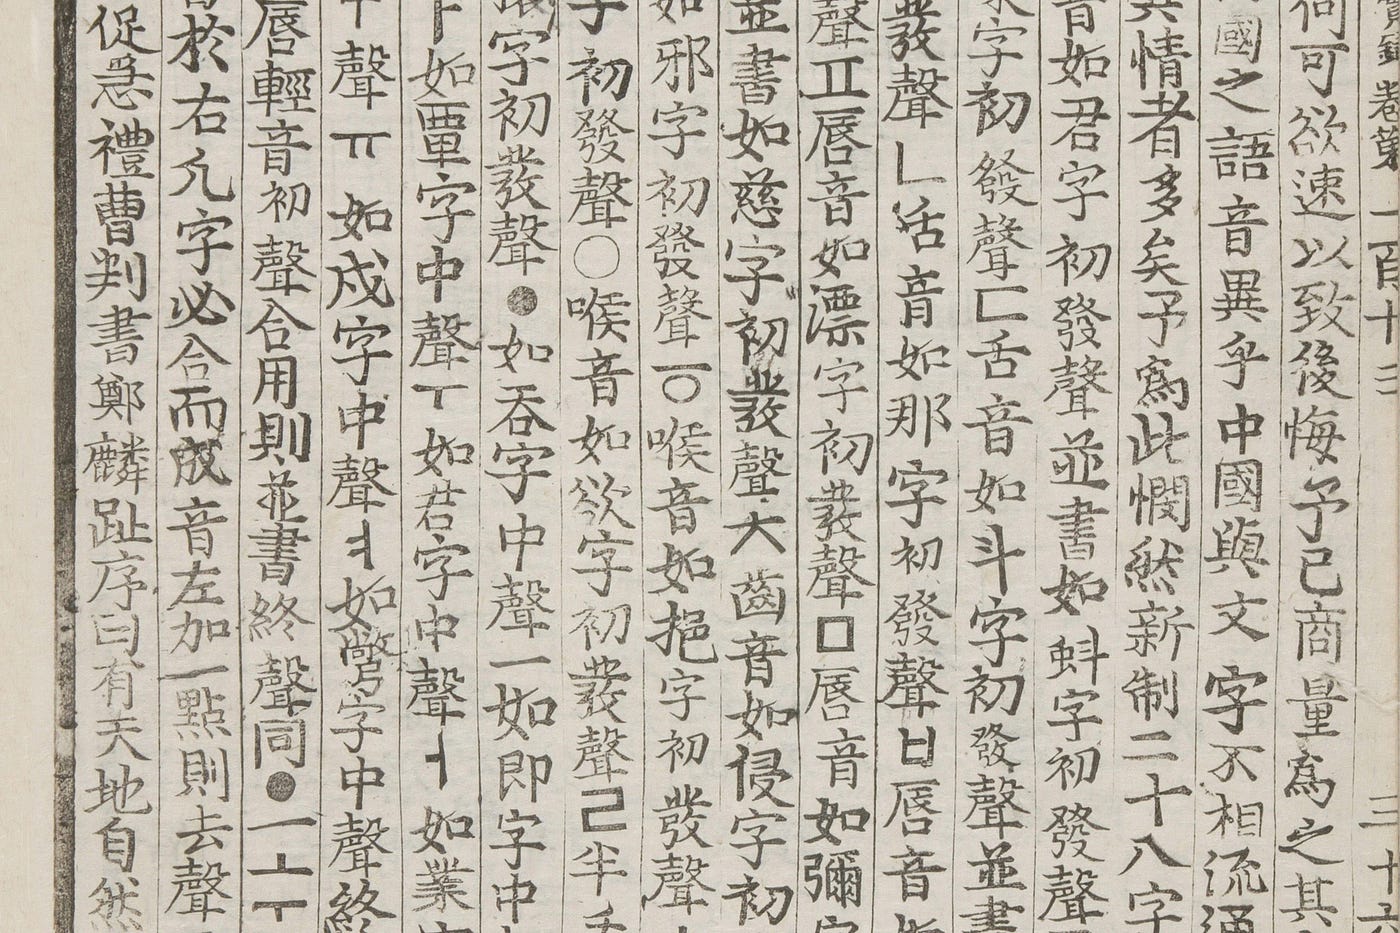 實錄卷第一百十三 三十六
何可欲速以致後悔予已商量爲之其
國之語音異乎中國與文字不相流通
其情者多矣予爲此憫然新制二十八字
音如君字初發聲並書如蚪字初發聲
字初發聲ㄷ舌音如斗字初發聲並書
發聲ㄴ舌音如那字初發聲ㅂ唇音
聲ㅍ唇音如漂字初發聲ㅁ唇音如彌
並書如慈字初發聲ㅊ齒音如侵字初
如邪字初發聲ㆆ喉音如挹字初發聲
字初發聲ㅇ喉音如欲字初發聲ㄹ半舌
字初發聲ㆍ如呑字中聲ㅡ如即字中
ㅏ如覃字中聲ㅜ如君字中聲ㅓ如業
聲ㅠ如戌字中聲ㅕ如彆字中聲終
唇輕音初聲合用則並書終聲同ㆍㅡㅗㅜ
於右凡字必合而成音左加一點則去聲
促急禮曹判書鄭麟趾序曰有天地自然